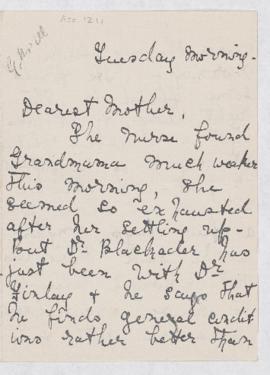 Tuesday Morning.
Dearest Mother,
The Nurse found
Grandmama much weaker
this morning, she
seemed so exhausted
after her settling up-
but Dr Blackader has
just been with Dr
Finlay & he says that
he finds general condit
ions rather better than